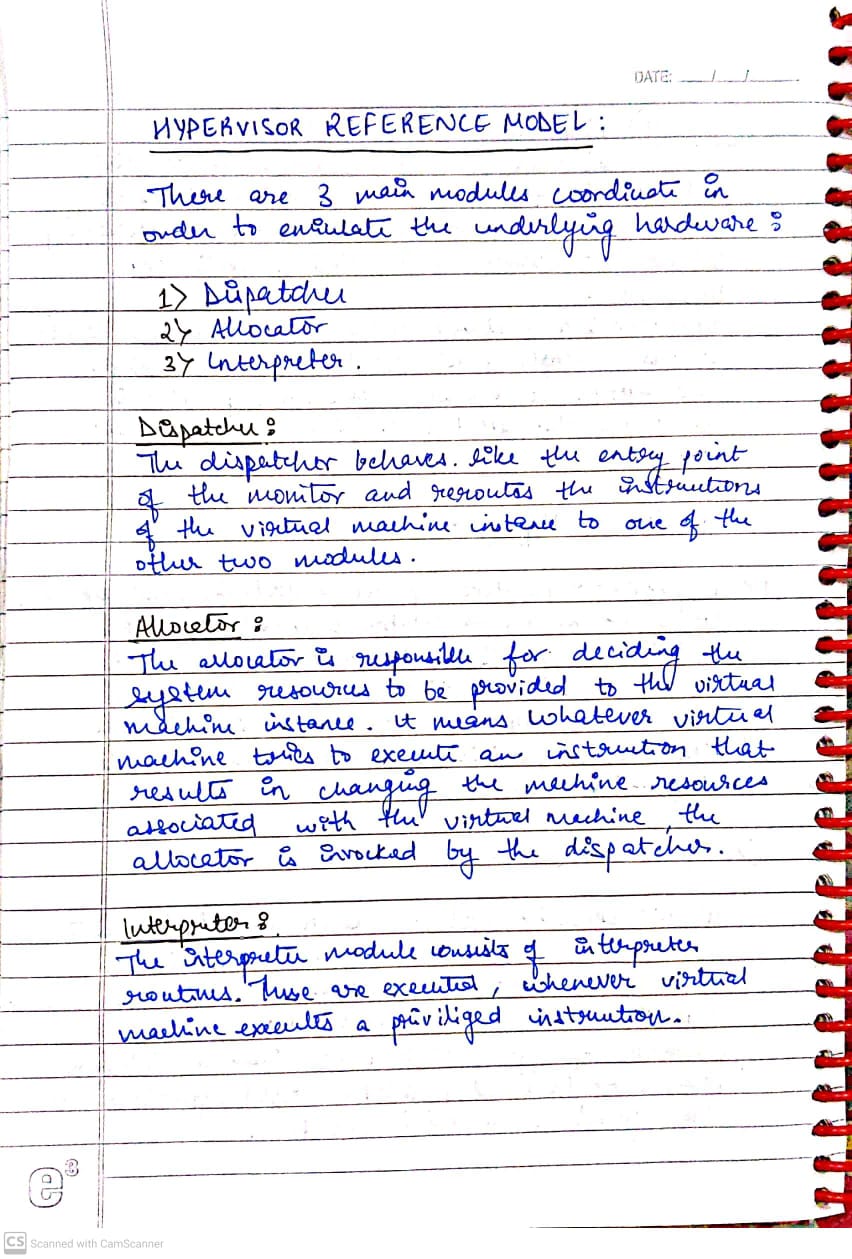 DATE: __/__/____
HYPERVISOR REFERENCE MODEL :
There are 3 main modules coordinate in
order to emulate the underlying hardware :
1) Dispatcher
2) Allocator
3) Interpreter .
Dispatcher :
The dispatcher behaves. like the entry point
of the monitor and reroutes the instructions
of the virtual machine instance to one of the
other two modules .
Allocator :
The allocator is responsible for deciding the
system resources to be provided to the virtual
machine instance . it means whatever virtual
machine tries to execute an instruction that
results in changing the machine resources
associated with the virtual machine , the
allocator is invocked by the dispatcher.
Interpreter :
The interpreter module consists of interpreter
routines. These are executed , whenever virtual
machine executes a priviliged instruction.
e3
CS Scanned with CamScanner